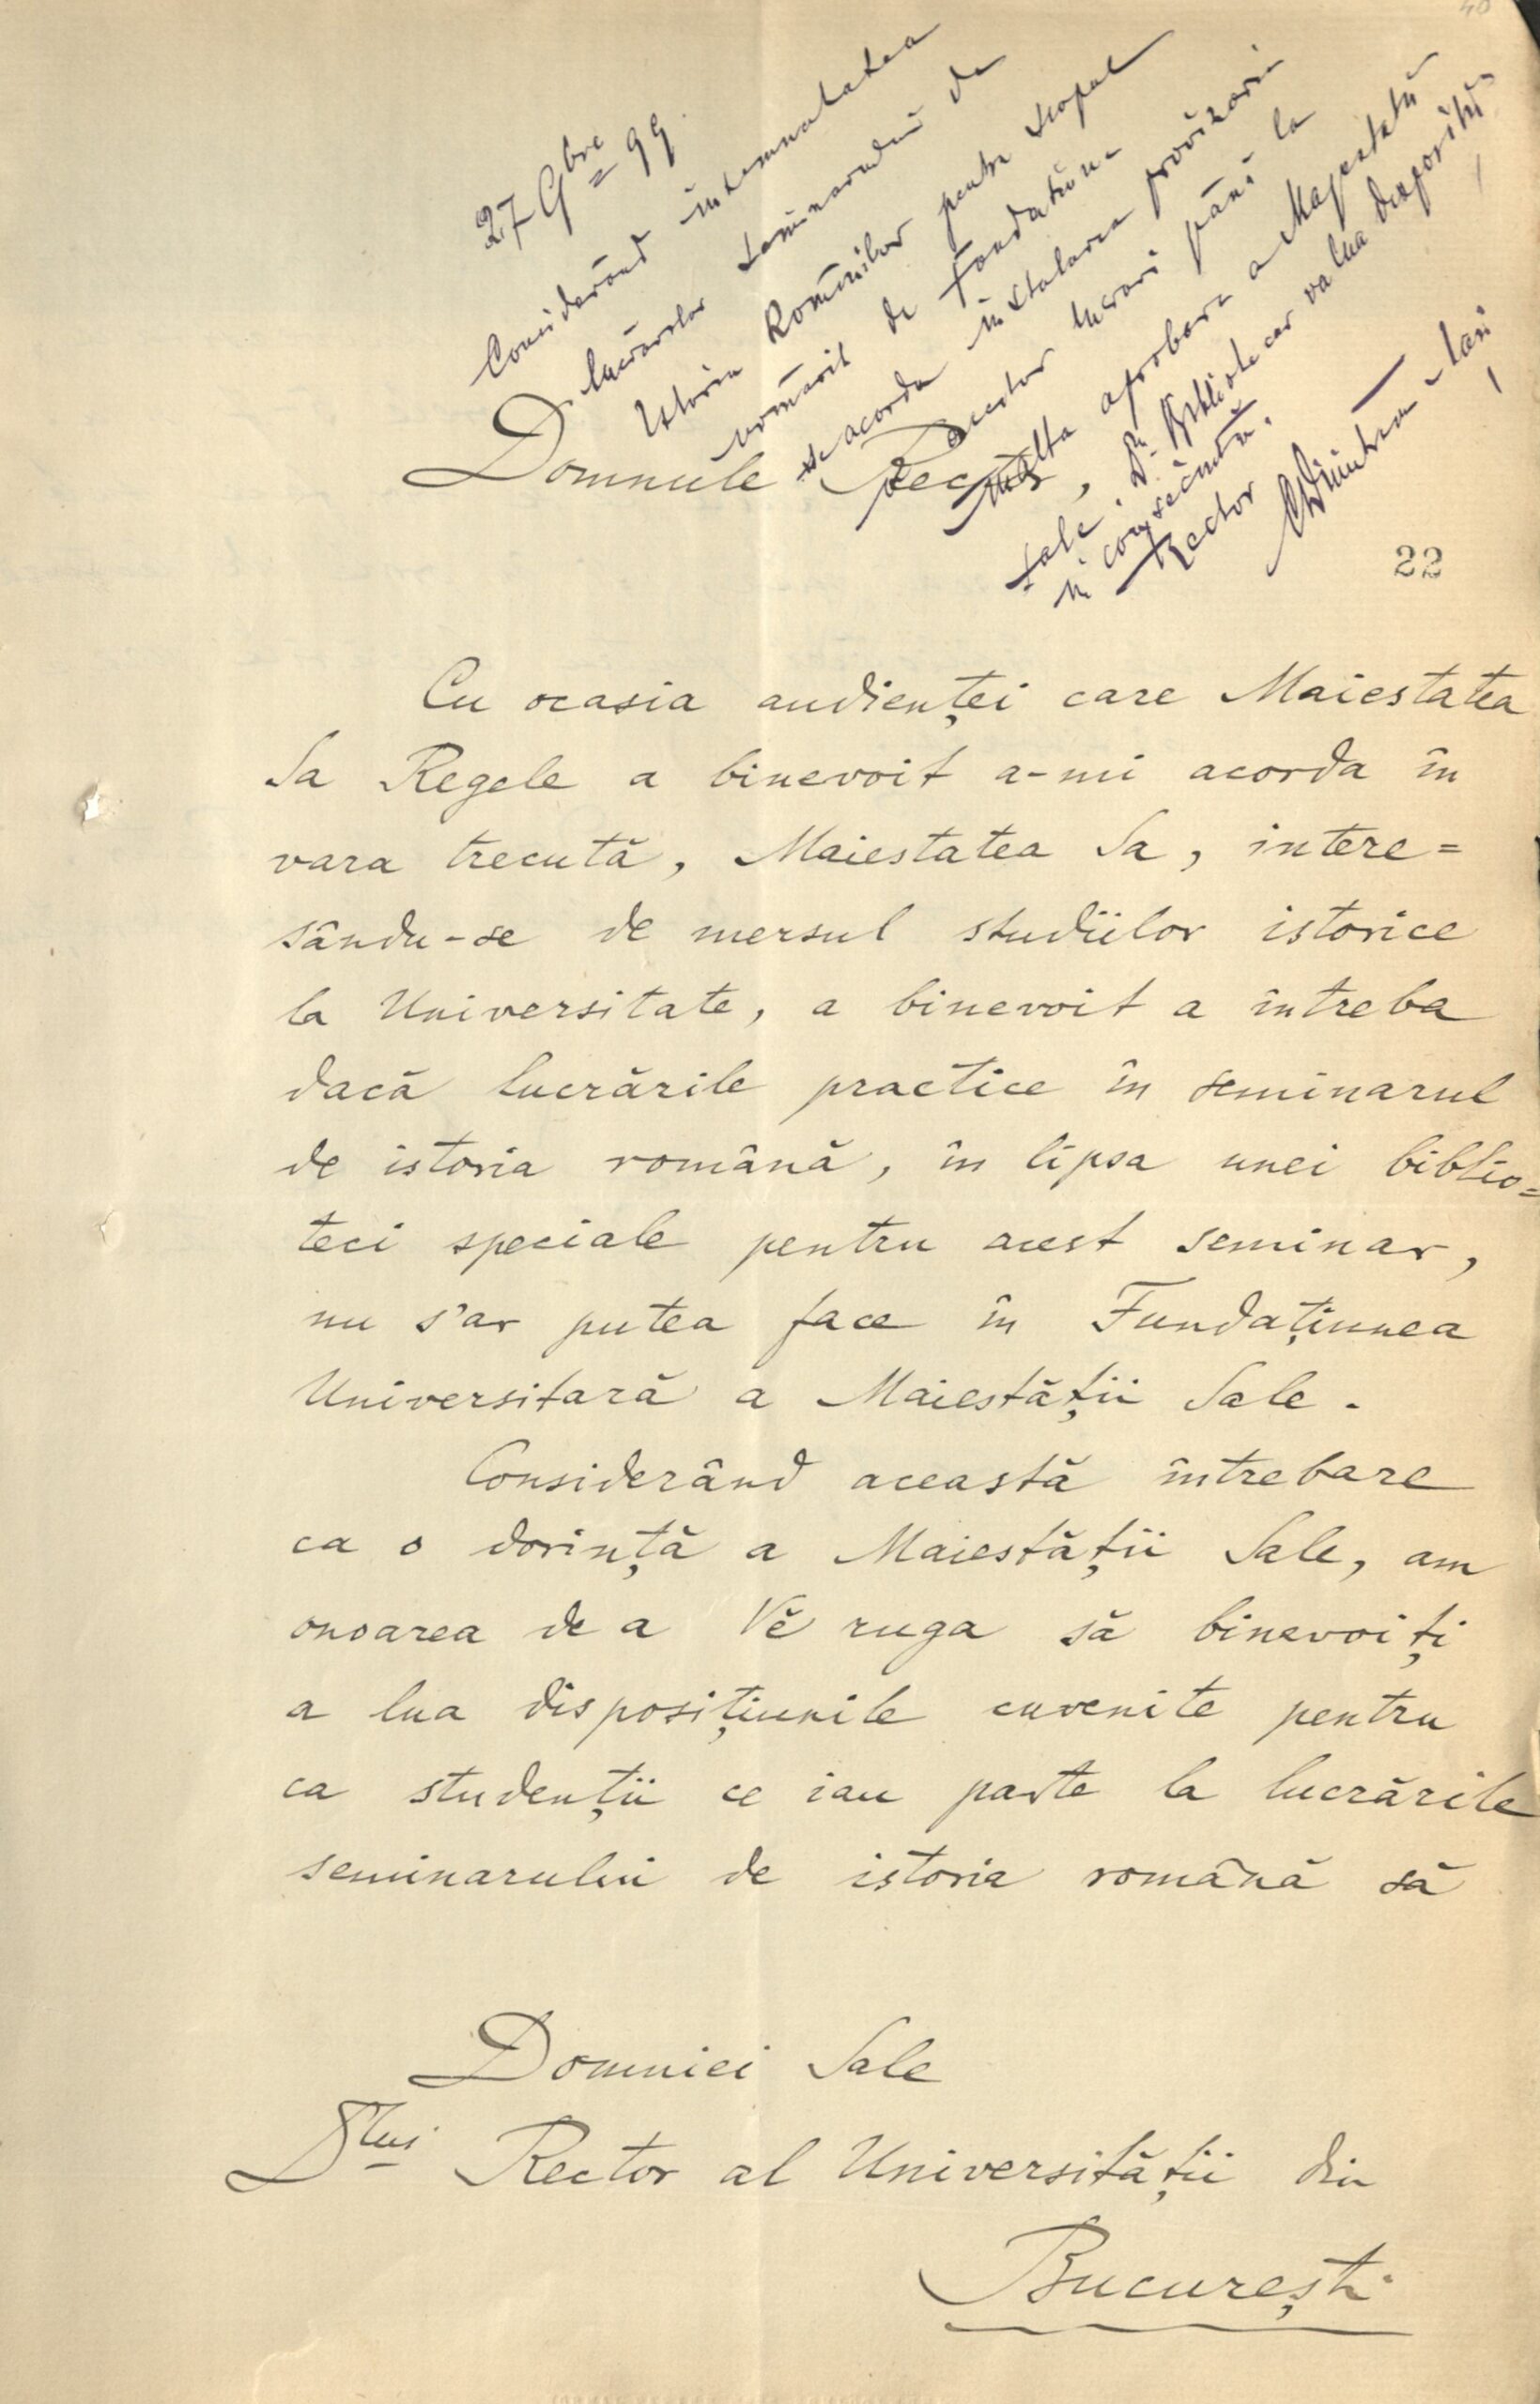 40
27 9bre 99
Considerând însemnatatea
lucrărilor Seminarului de
Istoria Românilor pentru scopul
urmărit de Fondatiune
se acorda instalarea provizorie
a acestor lucrari până la
înalta aprobare a Majestatii
Sale. Dl Bibliotecar va lua dispozitii
în consecință.
Rector
Domnule Rector,
22
Cu ocasia audienței care Maiestatea
Sa Regele a binevoit a-mi acorda în
vara trecută, Maiestatea Sa, intere=
sându-se de mersul studiilor istorice
la Universitate, a binevoit a întreba
dacă lucrările practice în seminarul
de istoria română, în lipsa unei biblio=
teci speciale pentru acest seminar,
nu s'ar putea face în Fundațiunea
Universitară a Maiestății Sale.
Considerând această întrebare
ca o dorință a Maiestății Sale, am
onoarea de a Vĕ ruga să binevoiți
a lua disposițiunile cuvenite pentru
ca studenții ce iau parte la lucrările
seminarului de istoria română să
Domniei Sale
Dlui Rector al Universității din
București